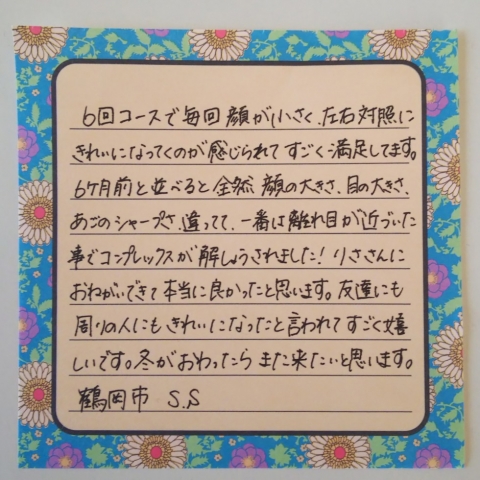 6回コースで毎回顔が小さく、左右対照に
きれいになってくのが感じられてすごく満足してます。
6ヶ月前と並べると全然顔の大きさ、目の大きさ、
あごのシャープさ、違ってて、一番は離れ目が近づいた
事でコンプレックスが解しょうされました!りささんに
おねがいできて本当に良かったと思います。友達にも
周りの人にもきれいになったと言われてすごく嬉
しいです。冬がおわったらまた来たいと思います。
鶴岡市 S.S